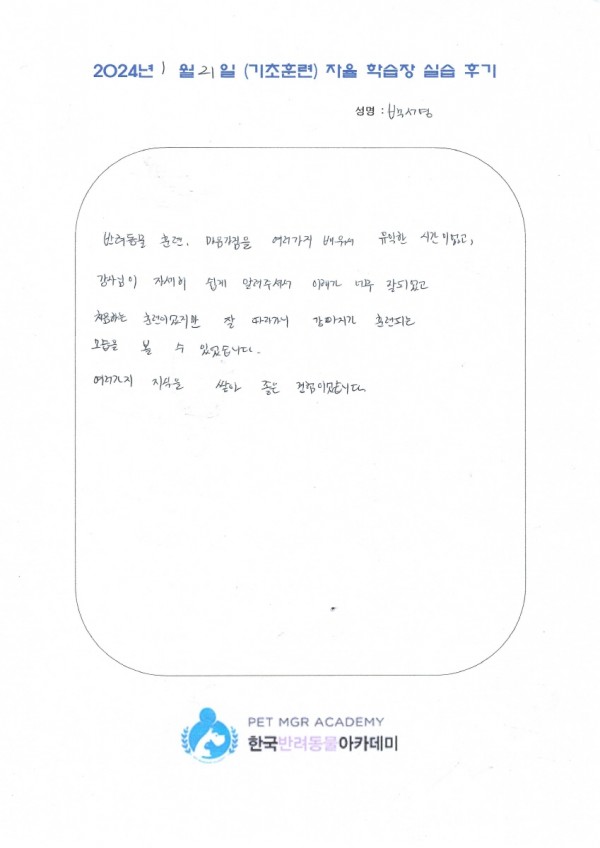 2024년 1 월 21 일 (기초훈련) 자율 학습장 실습 후기
성명 : 박서영
반려동물 훈련, 마음가짐을 여러가지 배워서 유익한 시간이었고,
강사님이 자세히 쉽게 알려주셔서 이해가 너무 잘되었고
처음하는 훈련이었지만 잘 따라가니 강아지가 훈련되는
모습을 볼 수 있었습니다.
여러가지 지식을 쌓아 좋은 경험이었습니다.
PET MGR ACADEMY
한국반려동물아카데미